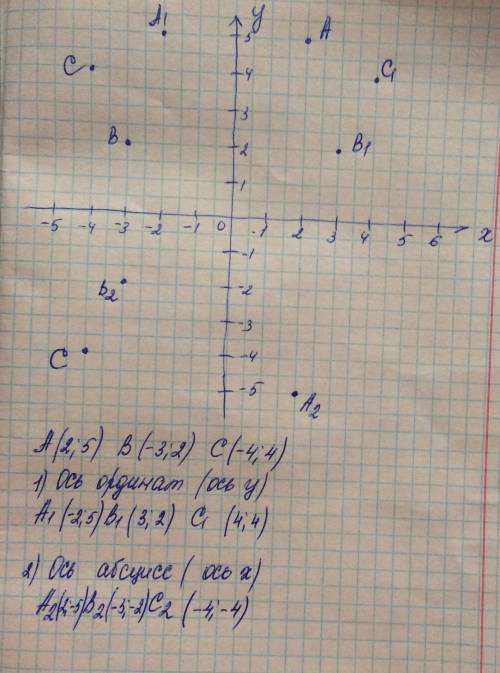 A1 y A
5
C 4 C1
3
B 2 B1
1
-5 -4 -3 -2 -1 0 1 2 3 4 5 6 x
-1
b2 -2
-3
C -4
-5 A2
A(2;5) B(-3;2) C(-4;4)
1) Ось ординат (ось у)
A1(-2;5) B1(3;2) C1 (4;4)
2) Ось абсцисс (ось х)
A2(2;-5) B2(-3;-2) C2 (-4;-4)